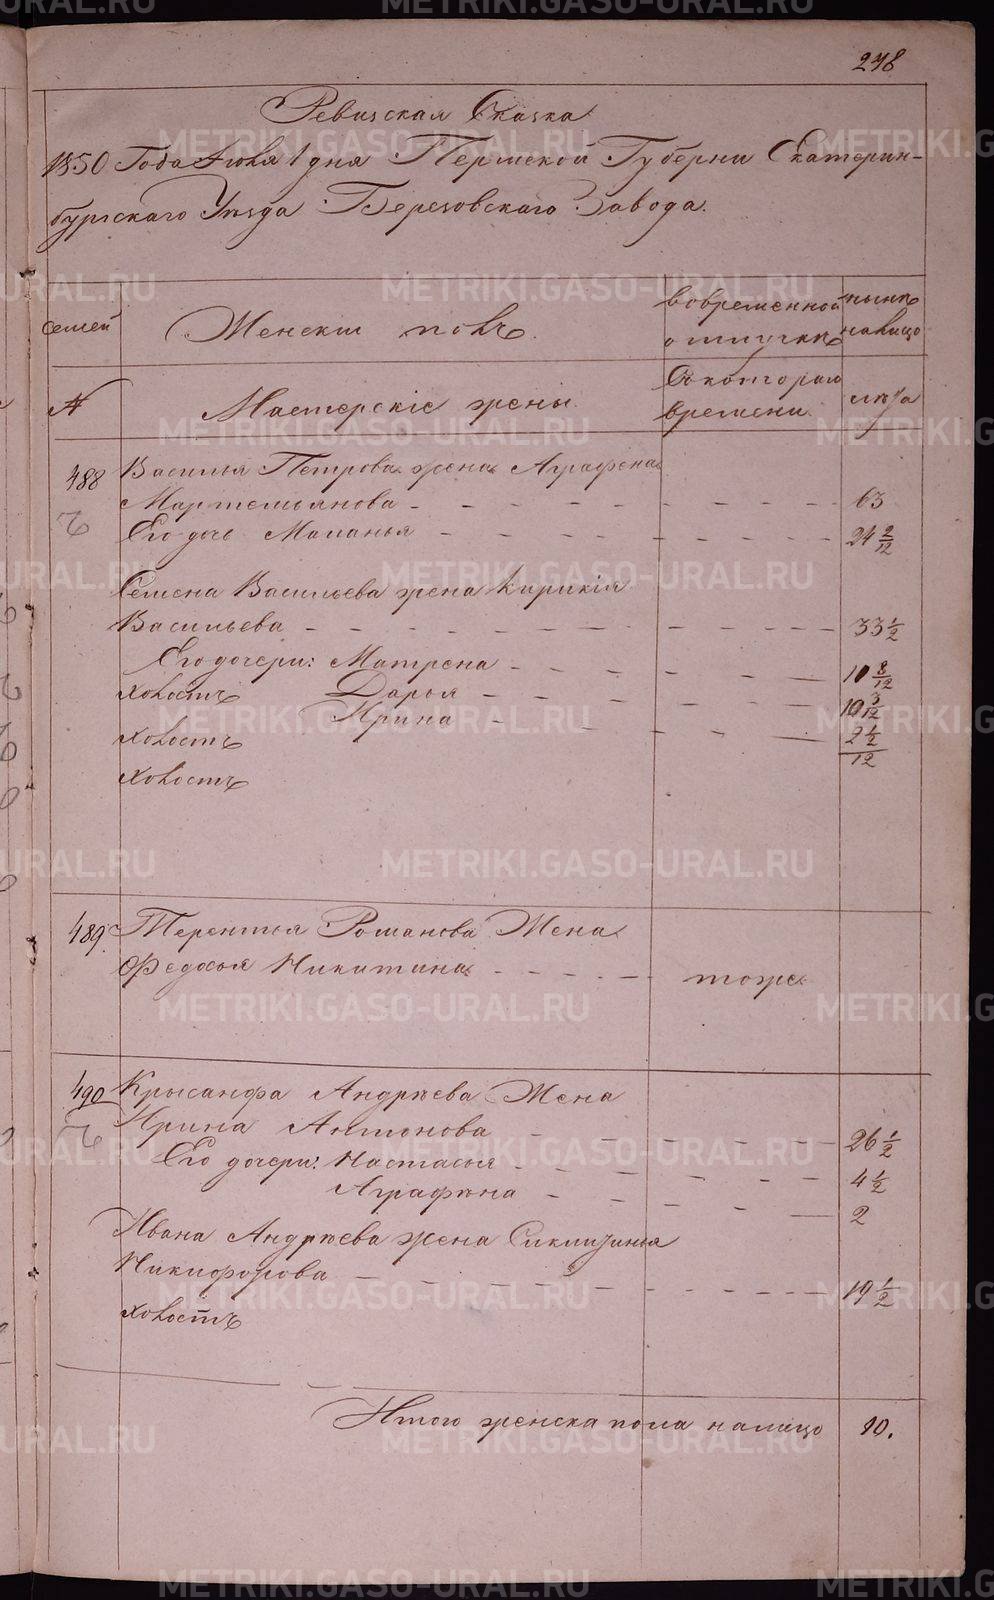 278
Ревиская Сказка
1850 Года Июля 1 дня Пермской Губерни Екатерин-
бургскаго Уѣзда Березовскаго Завода.
семей
Женский полъ.
во временной
отлучкѣ
нынѣ
налицо
№
Мастерскiе жены
Съ котораго
времени
лѣта
488 Василья Петрова жена Аграфена
Мартемьянова - - - - - - 63
Его дочь Маланья - - - - - - 24 2/12
Семена Васильева жена Кирикiя
Васильева - - - - - - 33 1/2
Его дочери: Матрена - - - - - 10 8/12
холостъ Дарья - - - - - 10 3/12
Ирина - - - - - 2 1/2/12
холостъ
холостъ
489 Терентья Романова Жена
Федосья Никитина - - - - тоже
490 Крысанфа Андрѣева Жена
Ирина Антонова - - - - - - 26 1/2
Его дочери: Настасья - - - - - 4 1/2
Аграфѣна - - - - - 2
Ивана Андрѣева жена Сиклитинья
Никифорова - - - - - - 19 1/2
холостъ
Итого женска пола налицо 10.
METRIKI.GASO-URAL.RU